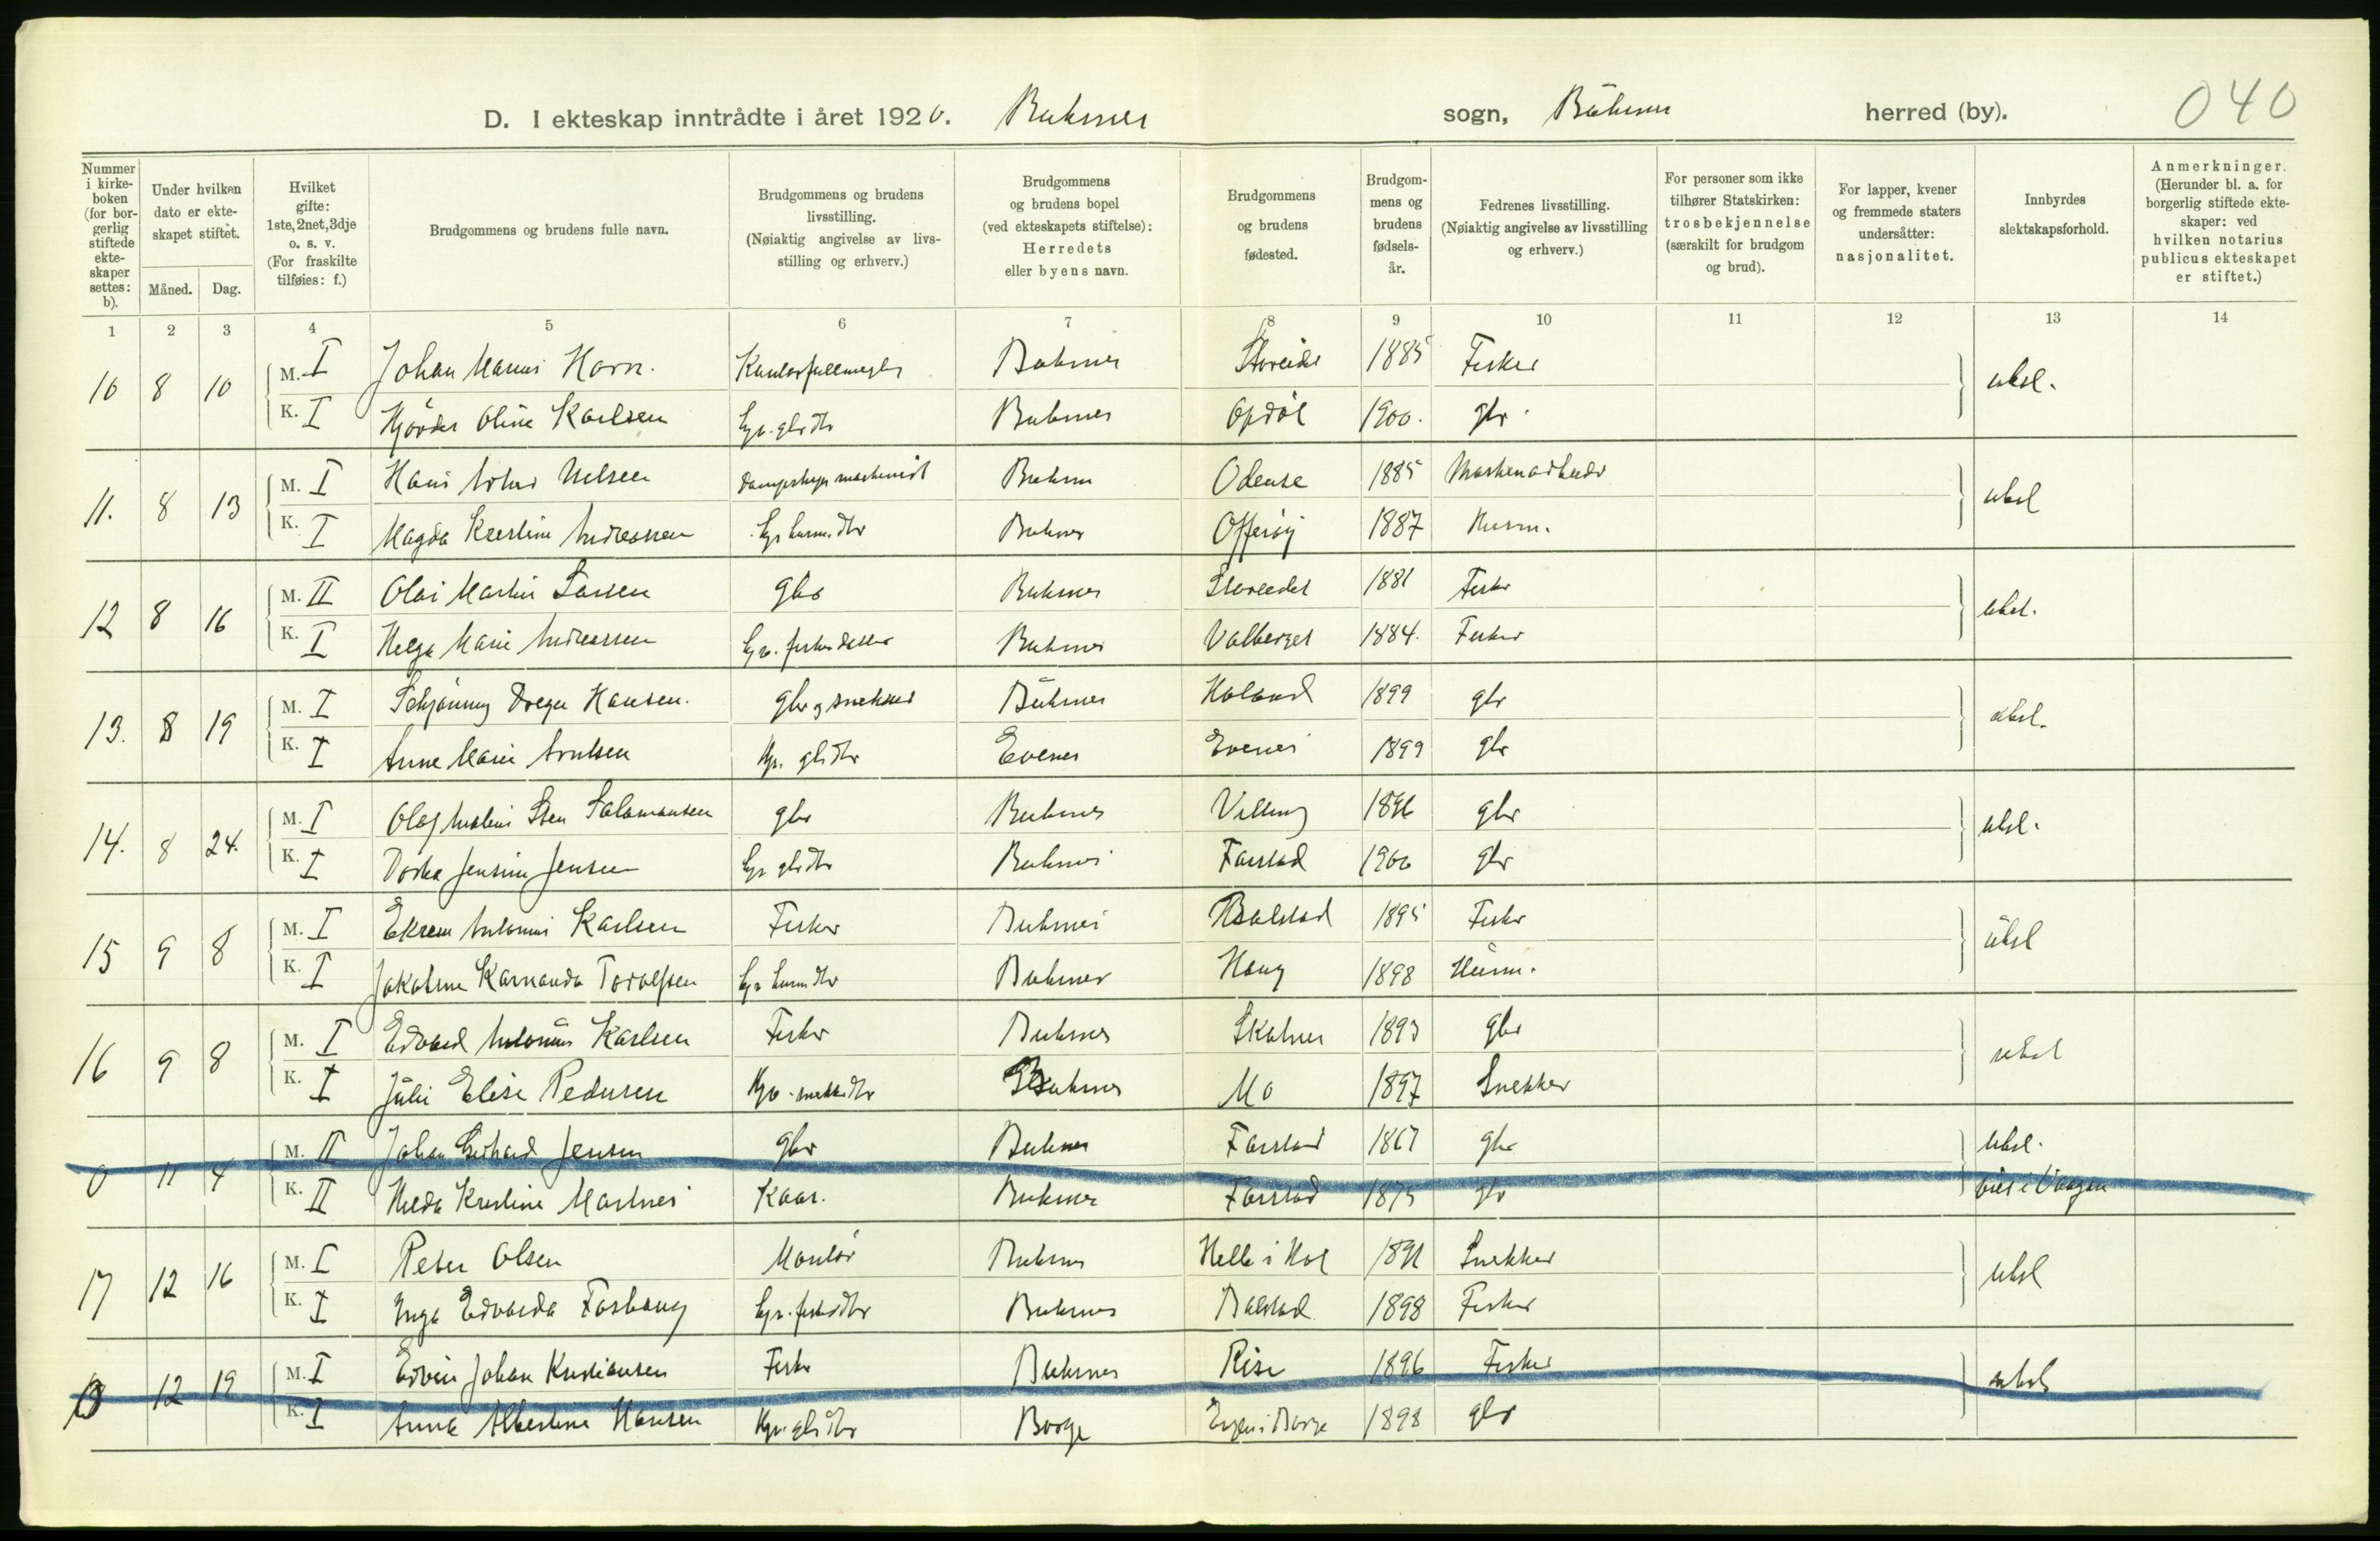 D. I ekteskap inntrådte i året 1920. Buksnes sogn, Buksnes herred (by). 040
Nummer i kirkeboken (for borgerlig stiftede ekteskaper settes: b).
Under hvilken dato er ekteskapet stiftet.
Måned. Dag.
Hvilket gifte: 1ste, 2net, 3dje o. s. v. (For fraskilte tilføies: f.)
Brudgommens og brudens fulle navn.
Brudgommens og brudens livsstilling. (Nøiaktig angivelse av livsstilling og erhverv.)
Brudgommens og brudens bopel (ved ekteskapets stiftelse): Herredets eller byens navn.
Brudgommens og brudens fødested.
Brudgommens og brudens fødselsår.
Fedrenes livsstilling. (Nøiaktig angivelse av livsstilling og erhverv.)
For personer som ikke tilhører Statskirken: trosbekjennelse (særskilt for brudgom og brud).
For lapper, kvener og fremmede staters undersåtter: nasjonalitet.
Innbyrdes slektskapsforhold.
Anmerkninger. (Herunder bl. a. for borgerlig stiftede ekteskaper: ved hvilken notarius publicus ekteskapet er stiftet.)
1 2 3 4 5 6 7 8 9 10 11 12 13 14
10 8 10 M. I Johan Marius Horn. Kontorfullmegtig Buksnes Storeidet 1885 Fisker ubsl.
K. I Hjördis Oline Karlsen Buksnes Opdöl 1900. gbr.
11. 8 13 M. I Hans Nilsen Buksnes Odense 1885 ubsl
K. I Magda Kristine Andreassen Buksnes Offersöy 1887 Husm.
12 8 16 M. II Olai Martin Larsen gbr Buksnes Storeidet 1881 Fisker ubsl.
K. I Helga Marie Andreassen Buksnes Valberget 1884. Fisker
13. 8 19 M. I Schjönning Dreyer Hansen. gbr og snekker Buksnes Holand 1899 gbr ubsl.
K. I Anne Marie Arntsen Evenes Evenes 1899 gbr
14. 8 24. M. I Olaf Sten Salomonsen gbr Buksnes 1896 gbr ubsl.
K. I Dorthea Jensine Jensen Buksnes Farstad 1900 gbr
15 9 8 M. I Antonius Karlsen Fisker Buksnes Balstad 1895 Fisker ubsl
K. I Jakobine Karnanda Torolfsen Buksnes Haug 1898 Husm.
16 9 8 M. I Edvard Antonius Karlsen Fisker Buksnes 1893 gbr ubsl
K. I Julie Elise Pedersen Buksnes Mo 1897 Snekker
0 11 4 M. II Johan Gerhard Jensen gbr Buksnes Farstad 1867 gbr ubsl.
K. II Hilda Kristine Buksnes Farstad 1875 gbr viet i Vaagan
17 12 16 M. I Peter Olsen Montör Buksnes Helle i Hol 1891 Snekker ubsl
K. I Inga Edvarda Buksnes Balstad 1898 Fisker
0 12 19 M. I Edvin Johan Kristiansen Fisker Buksnes Rise 1896 Fisker ubsl
K. I Anna Albertine Hansen Borge 1898 gbr